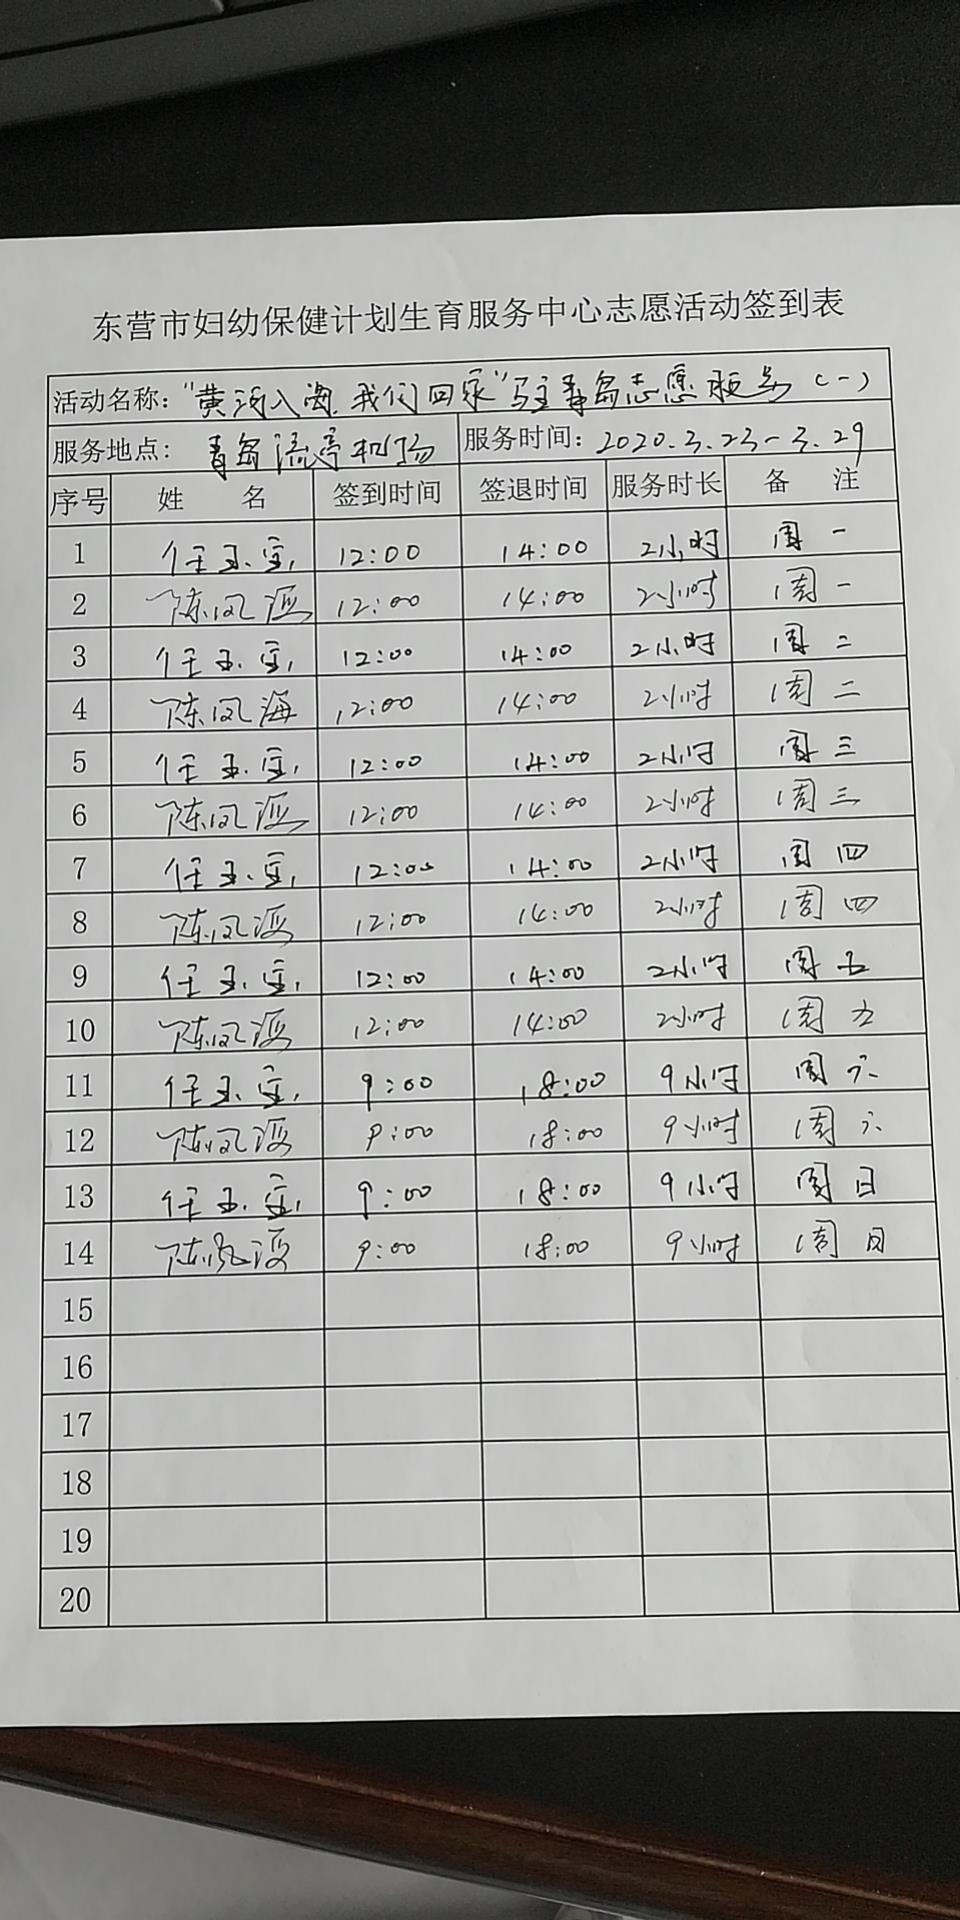 东营市妇幼保健计划生育服务中心志愿活动签到表
活动名称："黄河入海，我们回家"驻青岛志愿服务（一）
服务地点：青岛流亭机场 服务时间：2020.3.23-3.29
序号 姓 名 签到时间 签退时间 服务时长 备 注
1 任玉宝 12:00 14:00 2小时 周一
2 陈凤海 12:00 14:00 2小时 周一
3 任玉宝 12:00 14:00 2小时 周二
4 陈凤海 12:00 14:00 2小时 周二
5 任玉宝 12:00 14:00 2小时 周三
6 陈凤海 12:00 14:00 2小时 周三
7 任玉宝 12:00 14:00 2小时 周四
8 陈凤海 12:00 14:00 2小时 周四
9 任玉宝 12:00 14:00 2小时 周五
10 陈凤海 12:00 14:00 2小时 周五
11 任玉宝 9:00 18:00 9小时 周六
12 陈凤海 9:00 18:00 9小时 周六
13 任玉宝 9:00 18:00 9小时 周日
14 陈凤海 9:00 18:00 9小时 周日
15
16
17
18
19
20